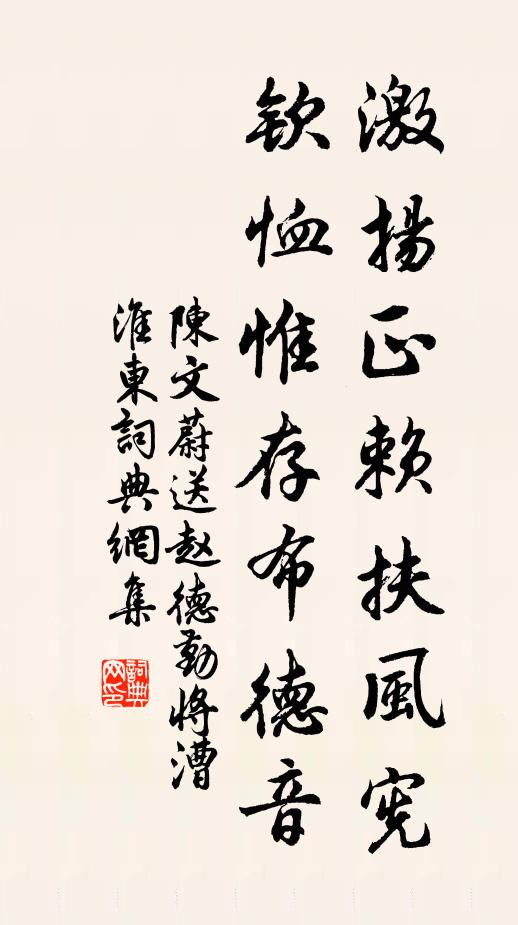 激揚正賴扶風憲
欽恤惟存布德音
陳文蔚送赵德勤將漕
淮東詞典網集
詞典网印